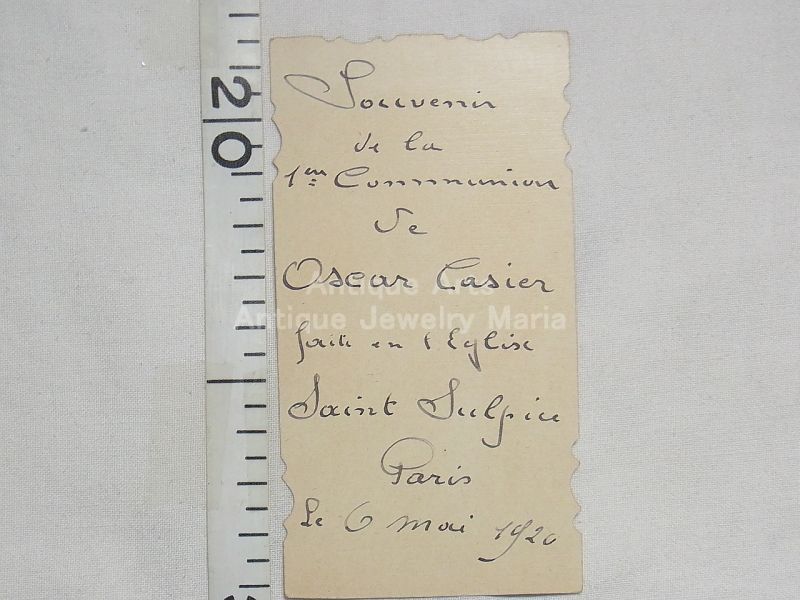 Souvenir
de la
1ère Communion
de
Oscar Casier
faite en l'Eglise
Saint Sulpice
Paris
Le 6 mai 1920
Antique Arts
Antique Jewelry Maria
20